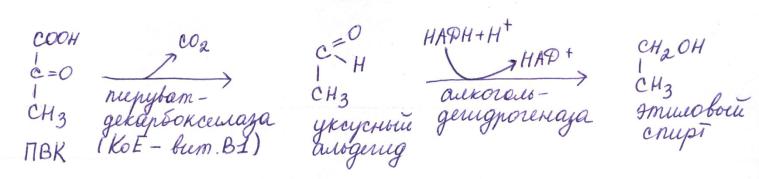 COOH
C=O
CH3
ПВК
CO2
пируват-
декарбоксилаза
(КоЕ - вит. В1)
C=O
H
CH3
уксусный
альдегид
НАДН+Н+
НАД+
алкоголь-
дегидрогеназа
CH2OH
CH3
этиловый
спирт